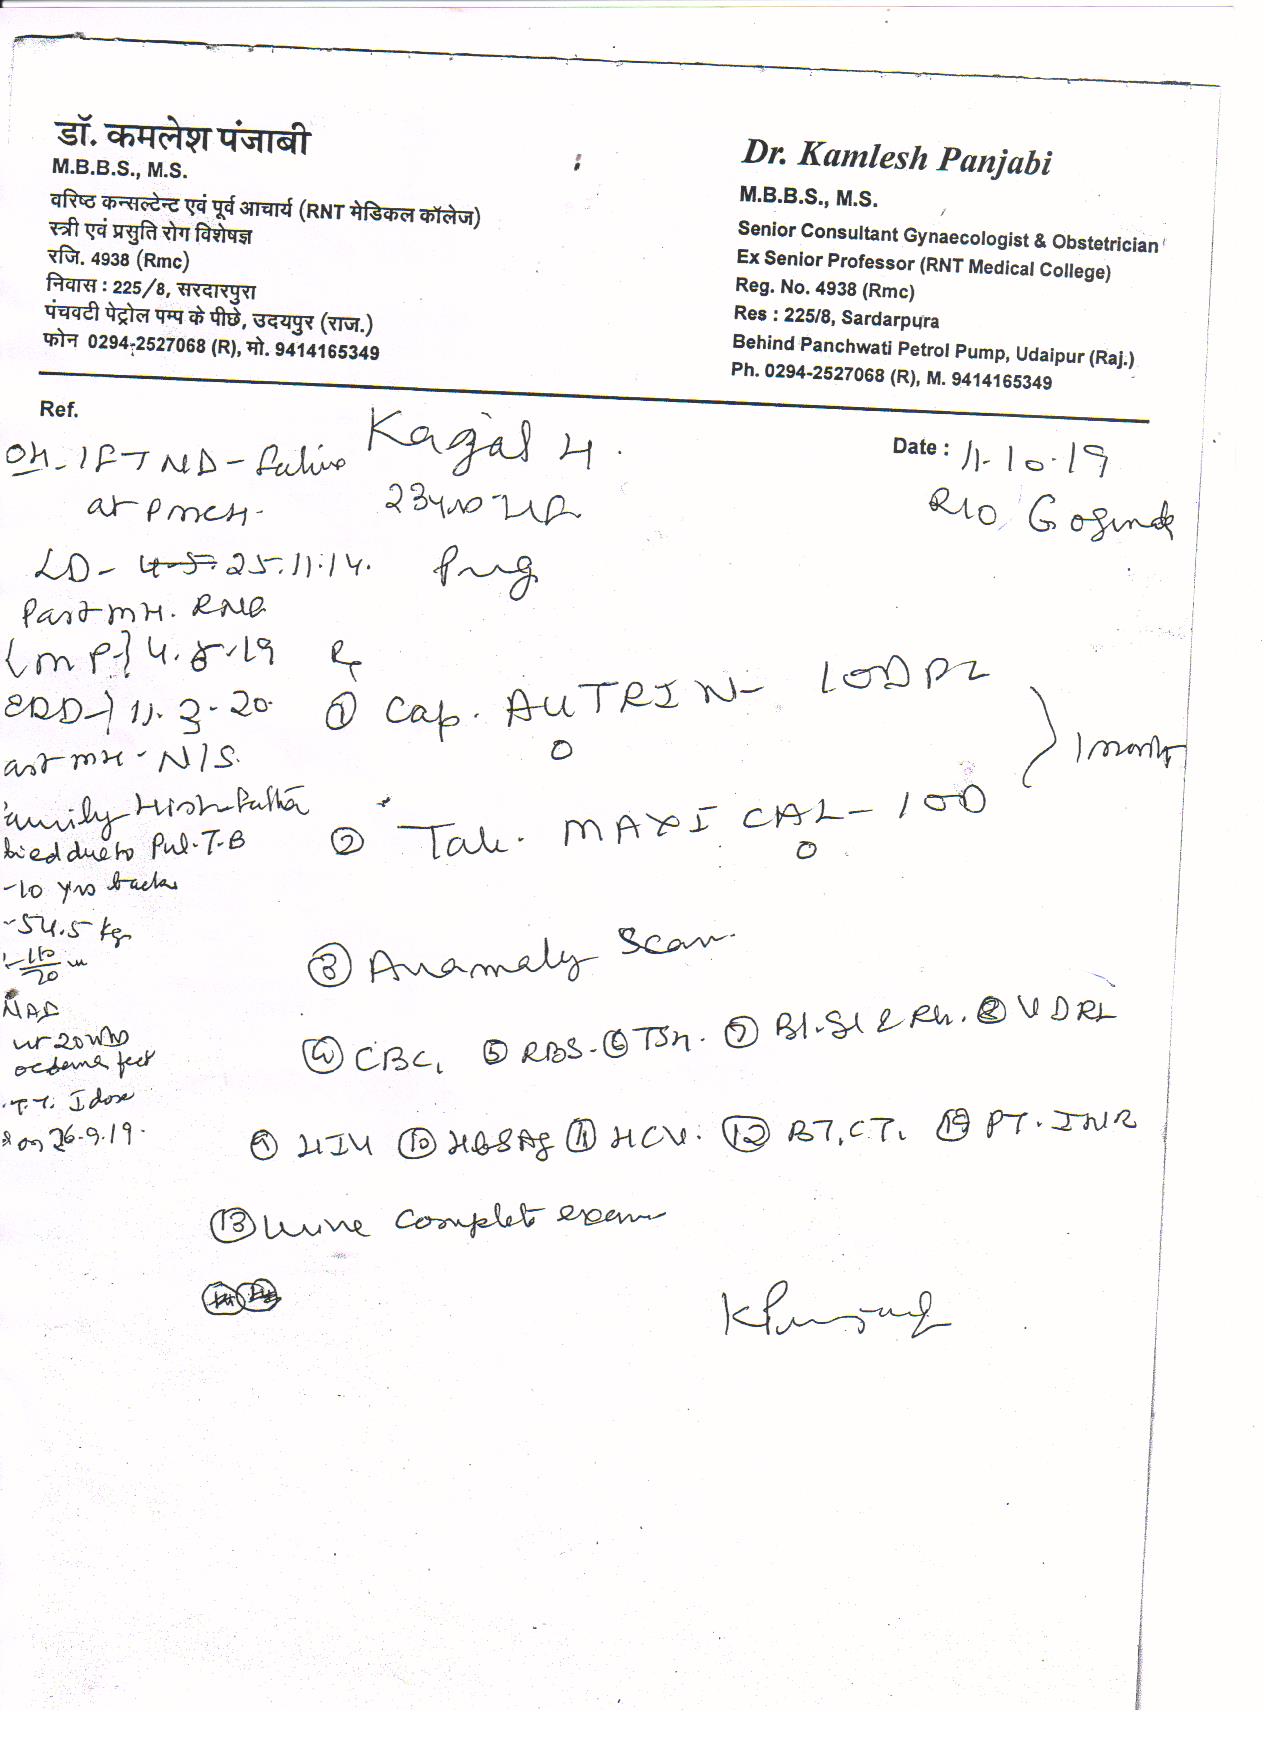 डॉ. कमलेश पंजाबी
M.B.B.S., M.S.
वरिष्ठ कन्सल्टेन्ट एवं पूर्व आचार्य (RNT मेडिकल कॉलेज)
स्त्री एवं प्रसुति रोग विशेषज्ञ
रजि. 4938 (Rmc)
निवास : 225/8, सरदारपुरा
पंचवटी पेट्रोल पम्प के पीछे, उदयपुर (राज.)
फोन 0294-2527068 (R), मो. 9414165349
Dr. Kamlesh Panjabi
M.B.B.S., M.S.
Senior Consultant Gynaecologist & Obstetrician
Ex Senior Professor (RNT Medical College)
Reg. No. 4938 (Rmc)
Res : 225/8, Sardarpura
Behind Panchwati Petrol Pump, Udaipur (Raj.)
Ph. 0294-2527068 (R), M. 9414165349
Ref.
Kajal
Date : 11.10.19
OH - 1 FTND -
at PMCH.
23 yrs
R/o
LD - 25.11.14.
Past MH.
LMP} 4.6.19
EDD-} 11.3.20.
① Cap. AUTRIN -
0
1 month
ast MH - N/S.
amily Hist-
died due to Pul. T.B
-10 yrs back
② Tab. MAXICAL -
0
-54.5 kg
③ Anomaly Scan.
NAD
④ CBC, ⑤ RBS. ⑥ TSH. ⑦ Bl. Gr & Rh. ⑧ VDRL
ut 20 wks
oedema feet
T.T. I dose
on 26.9.19.
⑨ HIV ⑩ HBSAg ⑪ HCV. ⑫ BT, CT, PT. INR
⑬ Urine complet exam